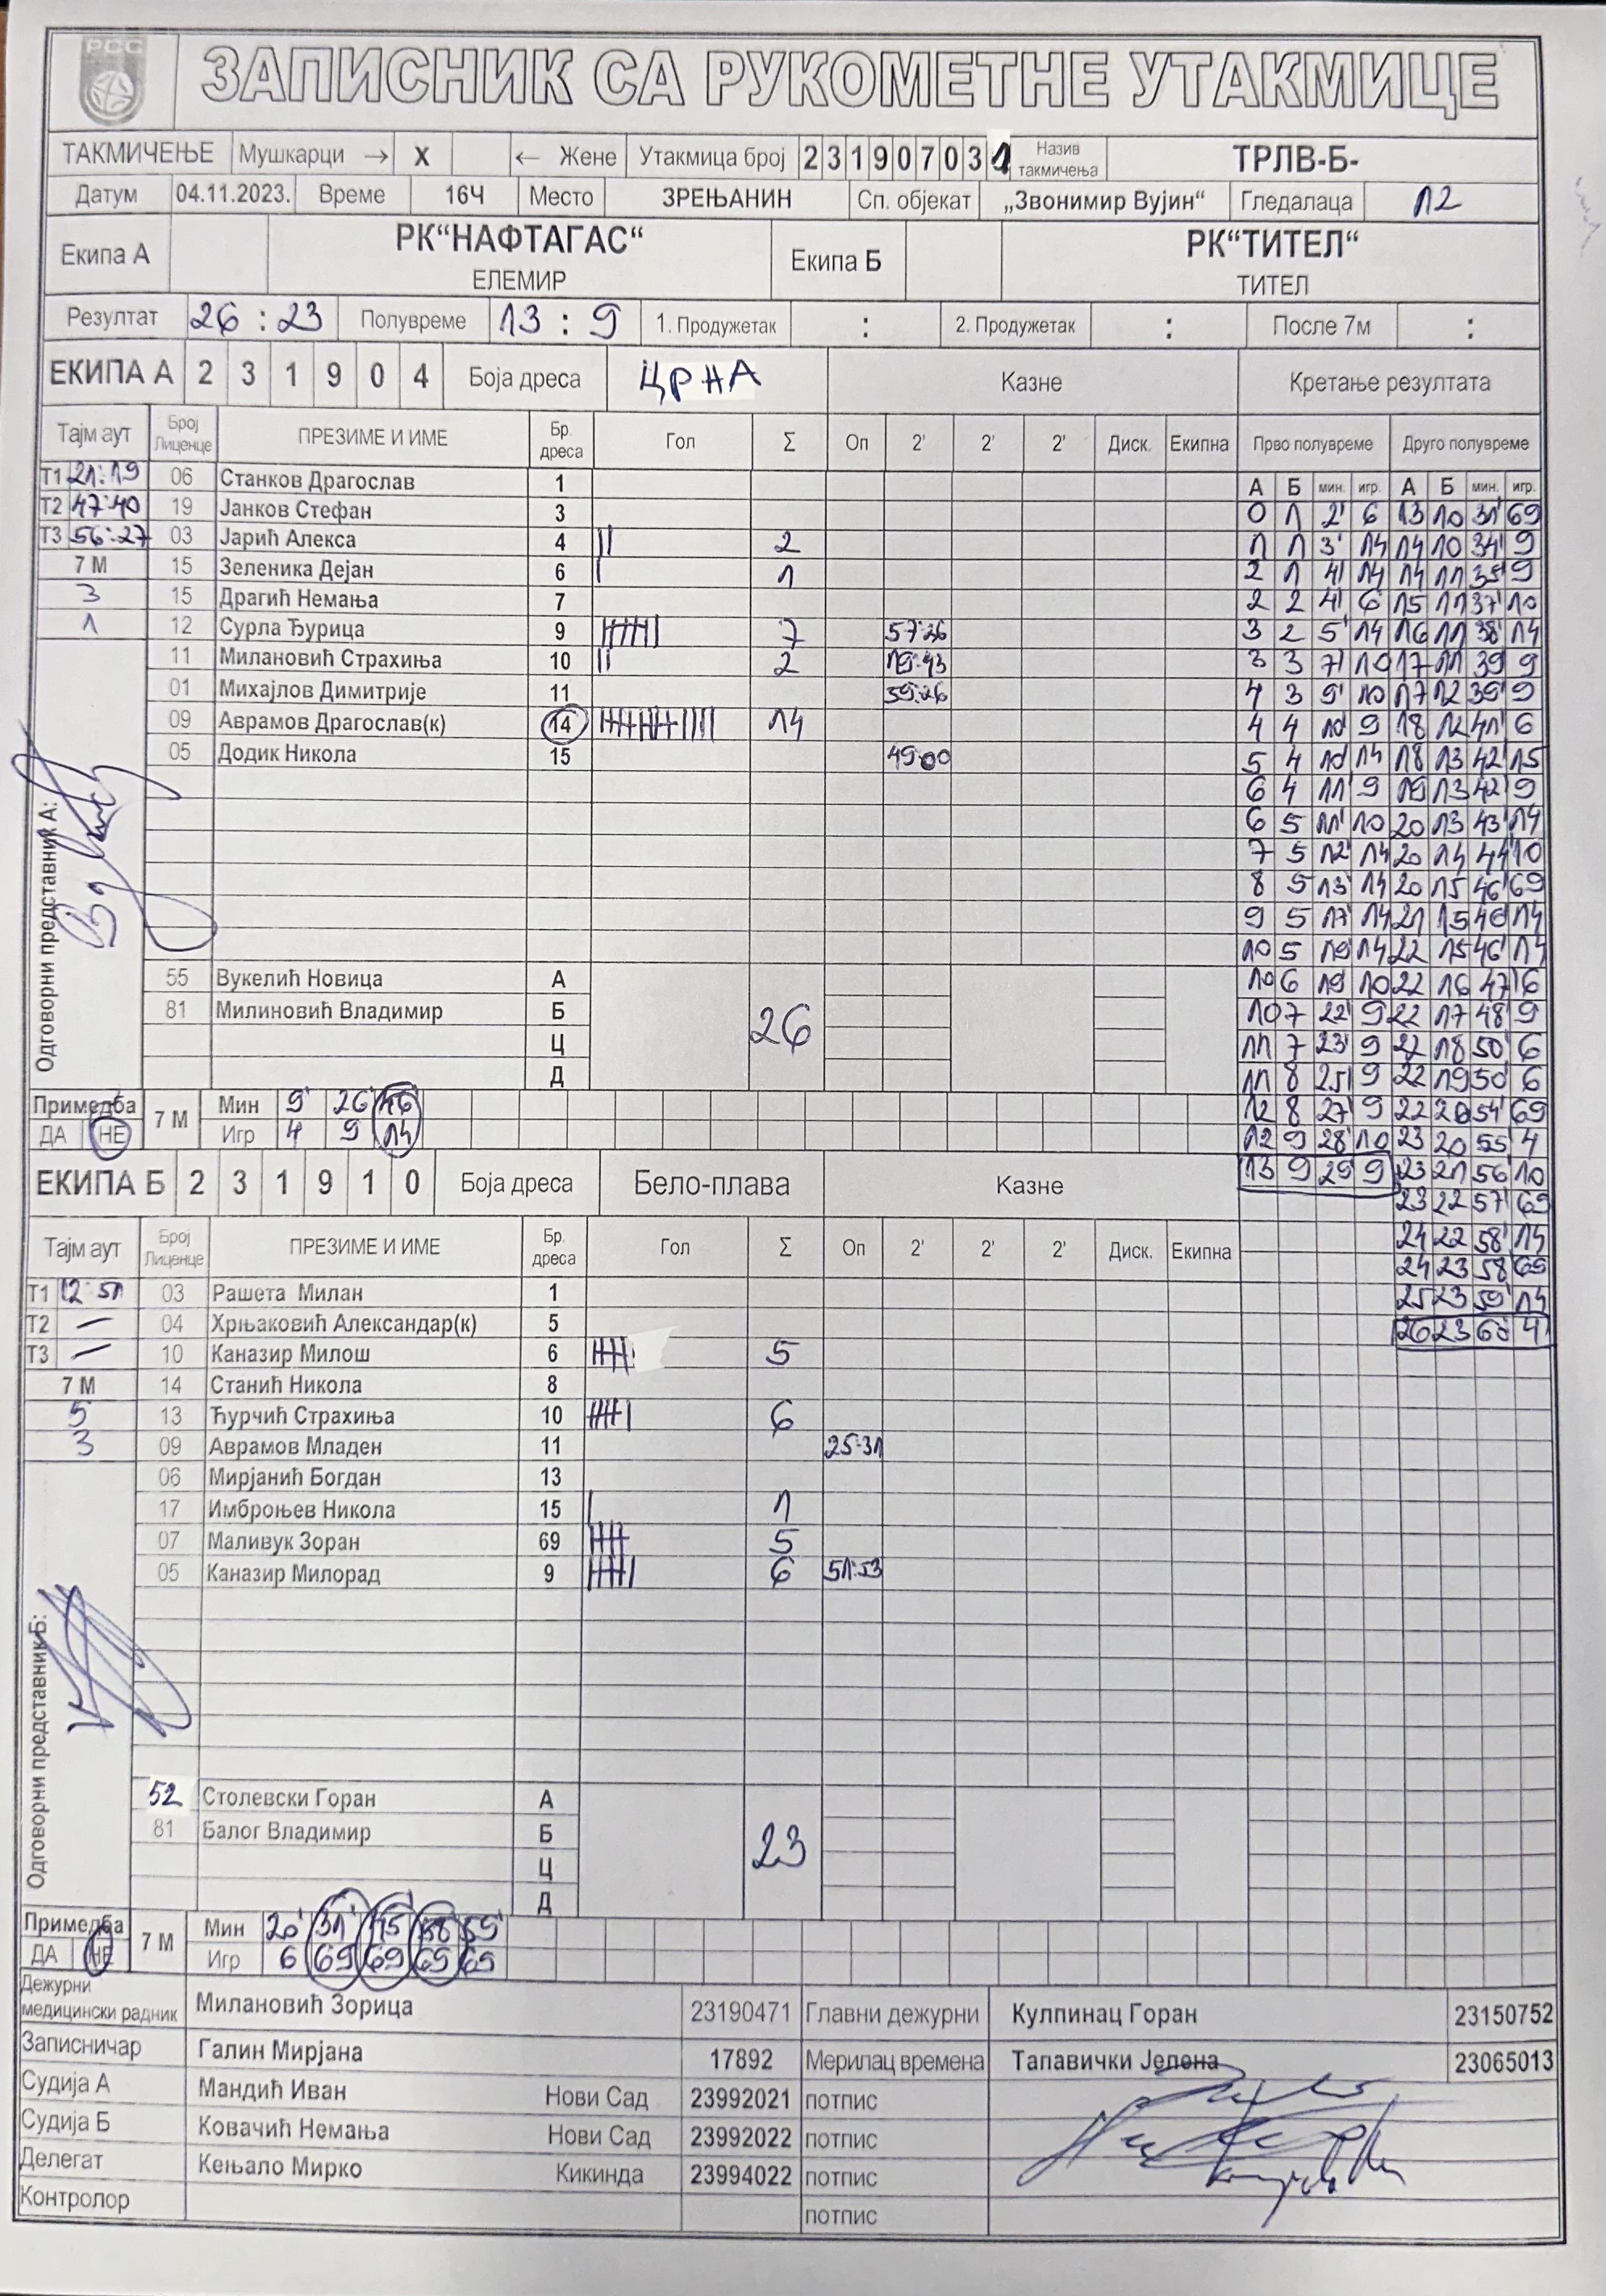 РСС
ЗАПИСНИК СА РУКОМЕТНЕ УТАКМИЦЕ
ТАКМИЧЕЊЕ Мушкарци → X ← Жене Утакмица број 231907031 Назив такмичења ТРЛВ-Б-
Датум 04.11.2023. Време 16Ч Место ЗРЕЊАНИН Сп. објекат „Звонимир Вујин“ Гледалаца 12
Екипа А РК“НАФТАГАС“ Екипа Б РК“ТИТЕЛ“
ЕЛЕМИР ТИТЕЛ
Резултат 26 : 23 Полувреме 13 : 9 1. Продужетак : 2. Продужетак : После 7м :
ЕКИПА А 2 3 1 9 0 4 Боја дреса ЦРНА Казне Кретање резултата
Тајм аут Број Лиценце ПРЕЗИМЕ И ИМЕ Бр. дреса Гол Σ Оп 2' 2' 2' Диск. Екипна Прво полувреме Друго полувреме
Т1 21:19 06 Станков Драгослав 1 А Б мин. игр. А Б мин. игр.
Т2 47:40 19 Јанков Стефан 3 0 1 2' 6 13 10 31' 69
Т3 56:27 03 Јарић Алекса 4 || 2 1 1 3' 14 14 10 34' 9
7 М 15 Зеленика Дејан 6 | 1 2 1 4' 14 14 11 35' 9
3 15 Драгић Немања 7 2 2 4' 6 15 11 37' 10
1 12 Сурла Ђурица 9 7 57:36 3 2 5' 14 16 11 38' 14
11 Милановић Страхиња 10 || 2 19:43 3 3 7' 10 17 11 39 9
01 Михајлов Димитрије 11 59:26 4 3 9' 10 17 12 39' 9
09 Аврамов Драгослав(к) 14 14 4 4 10' 9 18 12 41' 6
05 Додик Никола 15 49:00 5 4 10' 14 18 13 42' 15
6 4 11' 9 19 13 42' 9
6 5 11' 10 20 13 43' 14
7 5 12' 14 20 14 44' 10
8 5 13' 14 20 15 46' 69
9 5 17' 14 21 15 46 14
10 5 19' 14 22 15 46' 14
Одговорни представник А:
55 Вукелић Новица А 10 6 19' 10 22 16 47' 6
81 Милиновић Владимир Б 26 10 7 22' 9 22 17 48' 9
Ц 11 7 23' 9 22 18 50' 6
Д 11 8 25' 9 22 19 50' 6
Примедба 7 М Мин 9' 26' 46 12 8 27' 9 22 20 54' 69
ДА НЕ Игр 4 9 14 12 9 28' 10 23 20 55' 4
ЕКИПА Б 2 3 1 9 1 0 Боја дреса Бело-плава Казне 13 9 29' 9 23 21 56' 10
23 22 57' 69
Тајм аут Број Лиценце ПРЕЗИМЕ И ИМЕ Бр. дреса Гол Σ Оп 2' 2' 2' Диск. Екипна 24 22 58' 14
24 23 58' 69
Т1 12:51 03 Рашета Милан 1 25 23 59' 14
Т2 – 04 Хрњаковић Александар(к) 5 26 23 60' 4
Т3 – 10 Каназир Милош 6 5
7 М 14 Станић Никола 8
5 13 Ћурчић Страхиња 10 6
3 09 Аврамов Младен 11 25:31
06 Мирјанић Богдан 13
17 Имброњев Никола 15 | 1
07 Маливук Зоран 69 5
05 Каназир Милорад 9 6 51:53
Одговорни представник Б:
52 Столевски Горан А
81 Балог Владимир Б 23
Ц
Д
Примедба 7 М Мин 20' 31' 45' 58' 59'
ДА НЕ Игр 6 69 69 69 69
Дежурни медицински радник Милановић Зорица 23190471 Главни дежурни Кулпинац Горан 23150752
Записничар Галин Мирјана 17892 Мерилац времена Тапавички Јелена 23065013
Судија А Мандић Иван Нови Сад 23992021 потпис
Судија Б Ковачић Немања Нови Сад 23992022 потпис
Делегат Кењало Мирко Кикинда 23994022 потпис
Контролор потпис